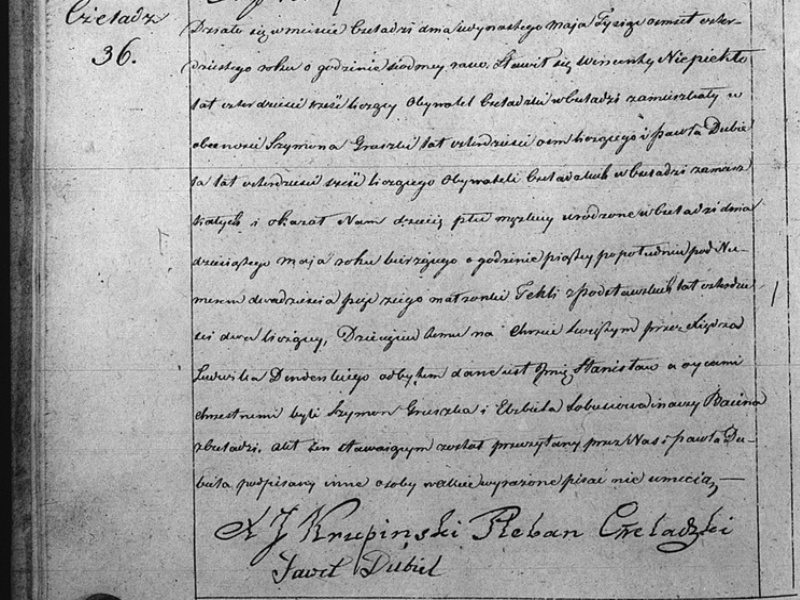 Czeladz
36.
Działo się w mieście Czeladzi dnia dwunastego Maja Tysiąc ośmset czter-
dziestego roku o godzinie siodmey rano. Stawił się Wincenty Niepiekło
lat czterdzieści sześć liczący Obywatel Czeladzki w Czeladzi zamieszkały w
obecności Szymona Gruszki lat czterdzieści ośm liczącego i Pawła Dubie
la lat czterdzieści sześć liczącego Obywateli Czeladzkich w Czeladzi zamiesz
kałych i okazał Nam dziecię płci męzkiey urodzone w Czeladzi dnia
dziesiątego Maja roku bieżącego o godzinie piątey popołudniu pod Nu-
merem dwadzieścia z jego małżonki Tekli z Podstawskich lat czterdzie
ści dwa liczącey, Dziecięciu temu na Chrzcie Swiętym przez Xiędza
Ludwika odbytem dane iest Imię Stanisław a oycami
chrzestnemi byli Szymon Gruszka i Elżbieta inaczy
z Czeladzi. Akt ten stawaiącym został przeczytany przez Nas i Pawła Du-
biela podpisany inne osoby w akcie wyrażone pisać nie umieią, —
X J Krupiński Pleban Czeladzki
Paweł Dubiel